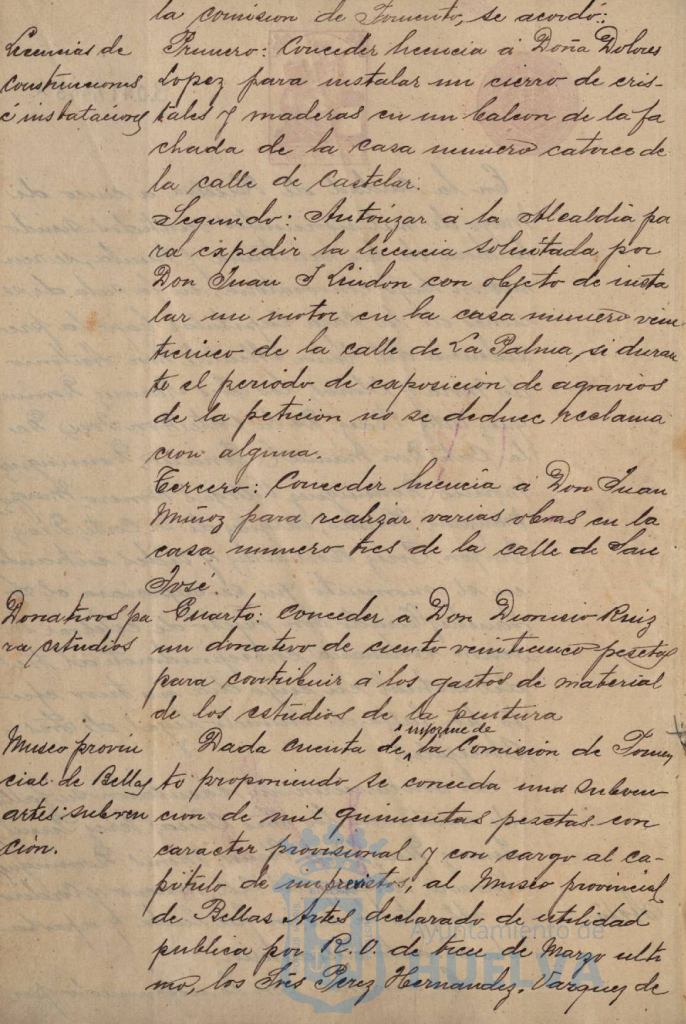 la comision de Fomento, se acordó:
Licencias de
construcciones
é instalaciones
Primero: Conceder licencia á Doña Dolores
Lopez para instalar un cierro de cris-
tales y maderas en un balcon de la fa
chada de la casa numero catorce de
la calle de Castelar.
Segundo: Autorizar á la Alcaldia pa
ra expedir la licencia solicitada por
Don Juan J Lindon con objeto de insta
lar un motor en la casa numero vein
ticinco de la calle de La Palma, si duran
te el periodo de exposicion de agravios
de la peticion no se deduce reclama
cion alguna.
Tercero: Conceder licencia á Don Juan
Muñoz para realizar varias obras en la
casa numero tres de la calle de San
José.
Donativos pa
ra estudios
Cuarto: conceder á Don Dionisio Ruiz
un donativo de ciento veinticinco pesetas
para contribuir á los gastos de material
de los estudios de la pintura
Museo provin
cial de Bellas
artes: subven
ción.
Dada cuenta de informe de la Comisión de Fomen
to proponiendo se conceda una subven
cion de mil quinientas pesetas con
caracter provisional y con cargo al ca-
pitulo de imprevistos, al Museo provincial
de Bellas Artes declarado de utilidad
publica por R. O. de trece de Marzo ulti
mo, los Srés Perez Hernandez, Vazquez de
Ayuntamiento de
HUELVA